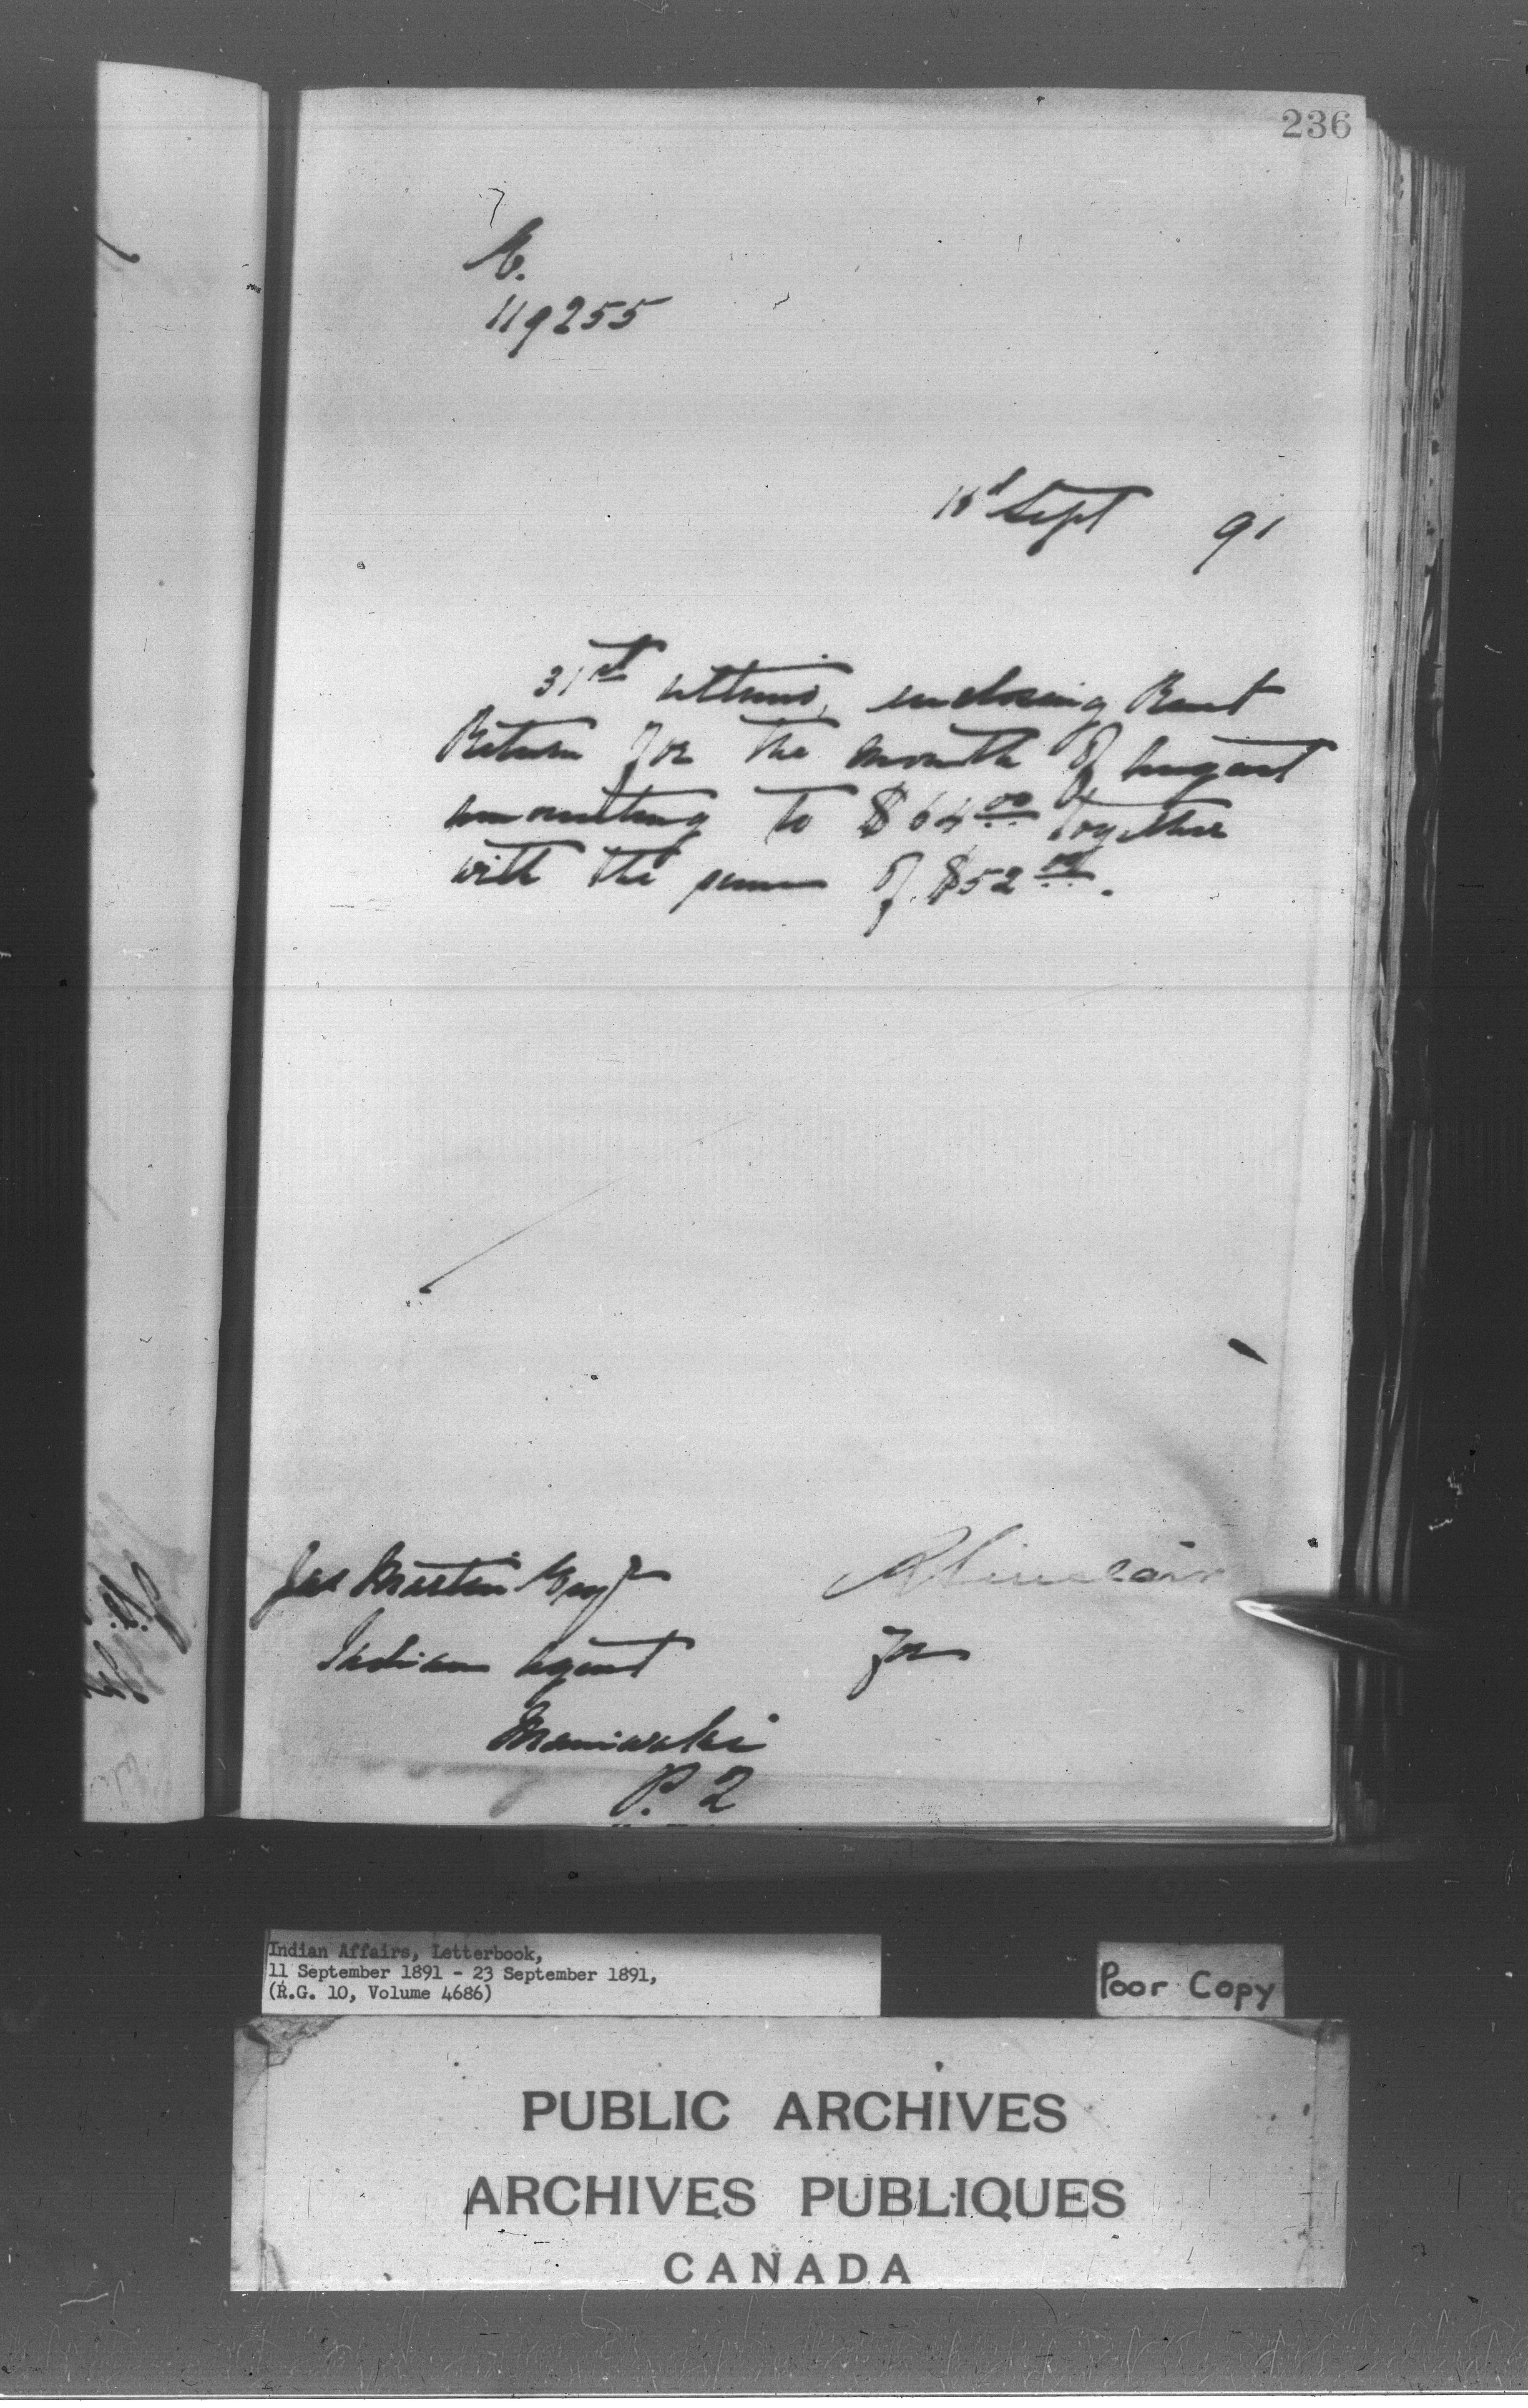 236
119255
Sept 91
31st ultimo, enclosing Rent
Return for the month of August
amounting to $64.00 together
with the sum of $52.00.
Jas Martin Esqr
R Sinclair
Indian Agent
for
Maniwaki
P. Q
Indian Affairs, Letterbook,
11 September 1891 - 23 September 1891,
(R.G. 10, Volume 4686)
Poor Copy
PUBLIC ARCHIVES
ARCHIVES PUBLIQUES
CANADA